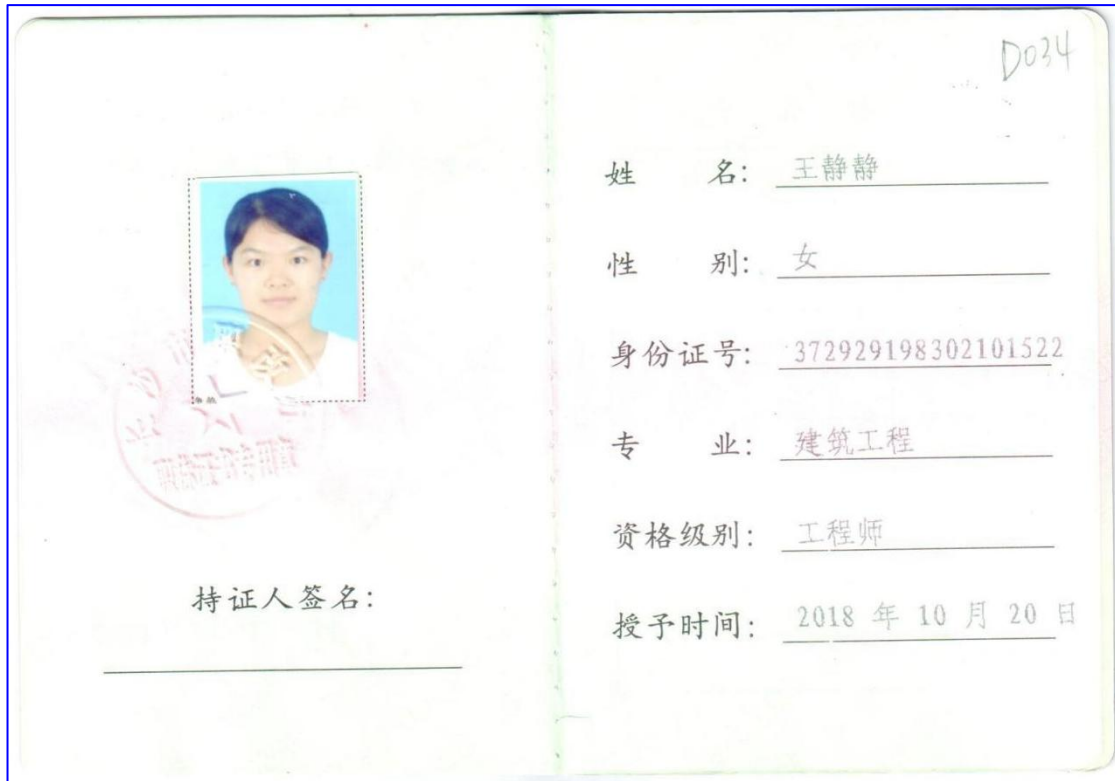 D034
姓 名: 王静静
性 别: 女
身份证号: 372929198302101522
专 业: 建筑工程
资格级别: 工程师
授予时间: 2018 年 10 月 20 日
持证人签名: